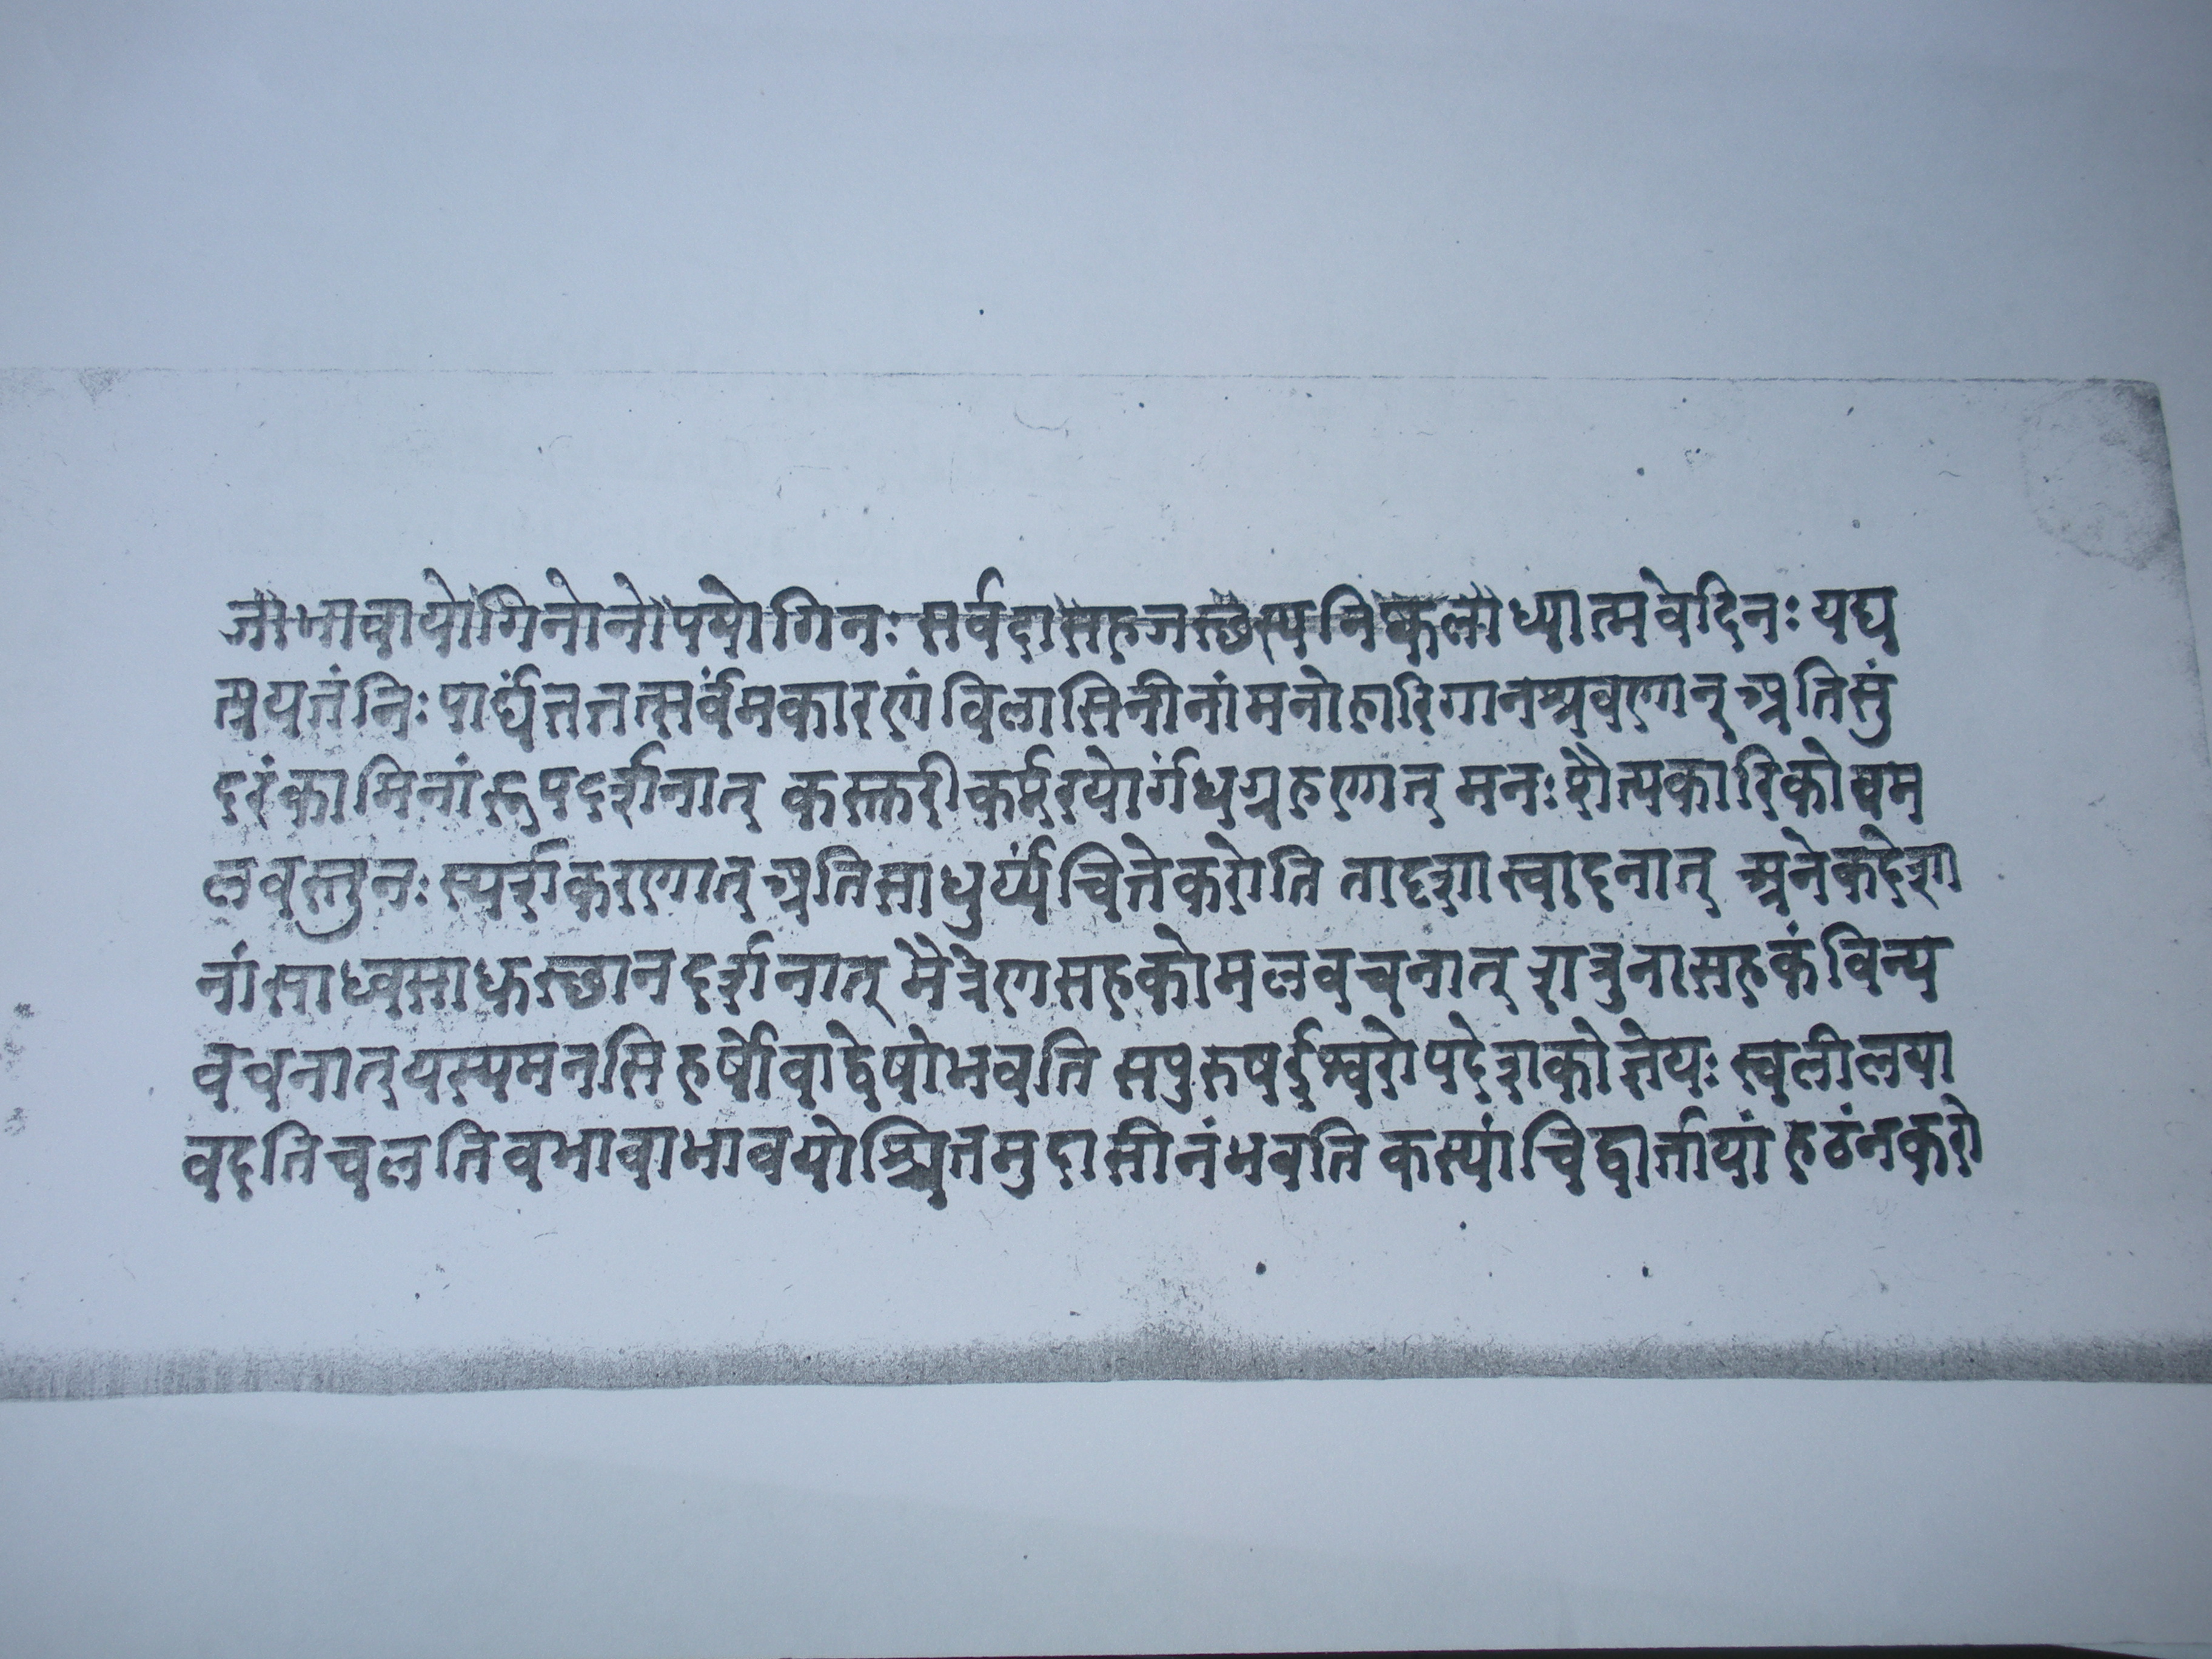 जीभावायोगिनोनोपयोगिनः सर्वदासहजस्छस्यनिष्कलाध्यात्मवेदिनः यद्य
त्नयत्नंनिः पार्द्यंतत्तत्सर्वमकारणं विलासिनीनांमनोहारिगानश्रवणान् अतिसुं
दरंकामिनांरूपदर्शनात् कस्तरीकर्पूरयोर्गंधग्रहणात् मनःशैत्यकारिकोम्वम
लवस्तुनः स्पर्शकरणात् अतिमाधुर्य्यंचित्तेकरोति तादृशास्वादनात् अनेकदेशा
नांसाध्वसाधुस्छानदर्शनात् मैत्रेणसहकोमलवचनात् शत्रुनासहकंविन्य
वचनात् यस्यमनसि हर्षोवाद्वेषोभवति सपुरुषईश्वरोपदेशकोज्ञेयः स्वलीलया
वदतिचलतिवभावाभावयोश्चित्तमुदासीनंभवति कस्यांचिद्वार्तायां हठंनकरो